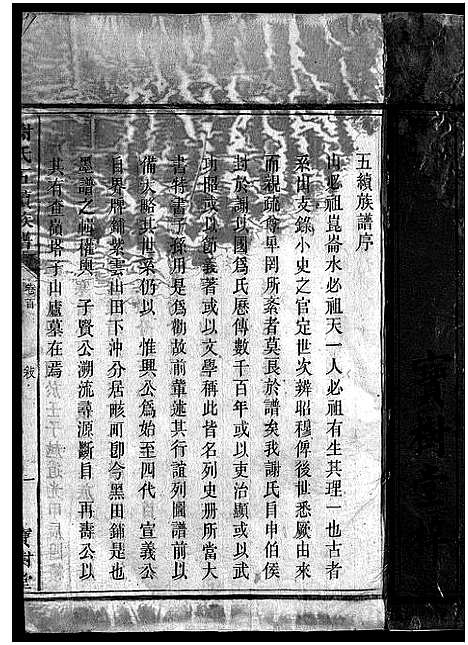 五續族譜序
山必祖崑崙水必祖天一人必祖有生其理一也古者
系由支錄小史之官定世次辨昭穆傳後世悉厥由來
而親疏尊卑罔所紊者莫良於譜矣我謝氏自申伯侯
封於謝以國爲氏歷傳數千百年或以治顯或以武
功昭或以節義著或以文學稱此皆名列史册所當大
書特書子孫用是爲勸故前輩述其行誼列圖譜前以
備大略其世系仍以 惟興公爲始至四代 宣義公
自界牌舖紫雲山田下沖分居畛町卽今黑田舖是也
墨譜之 權輿 子賢公溯流尋源斷自 再壽公以
其有查嶺塔子山廬墓在焉
氏五續族譜
卷首
一
寶樹堂